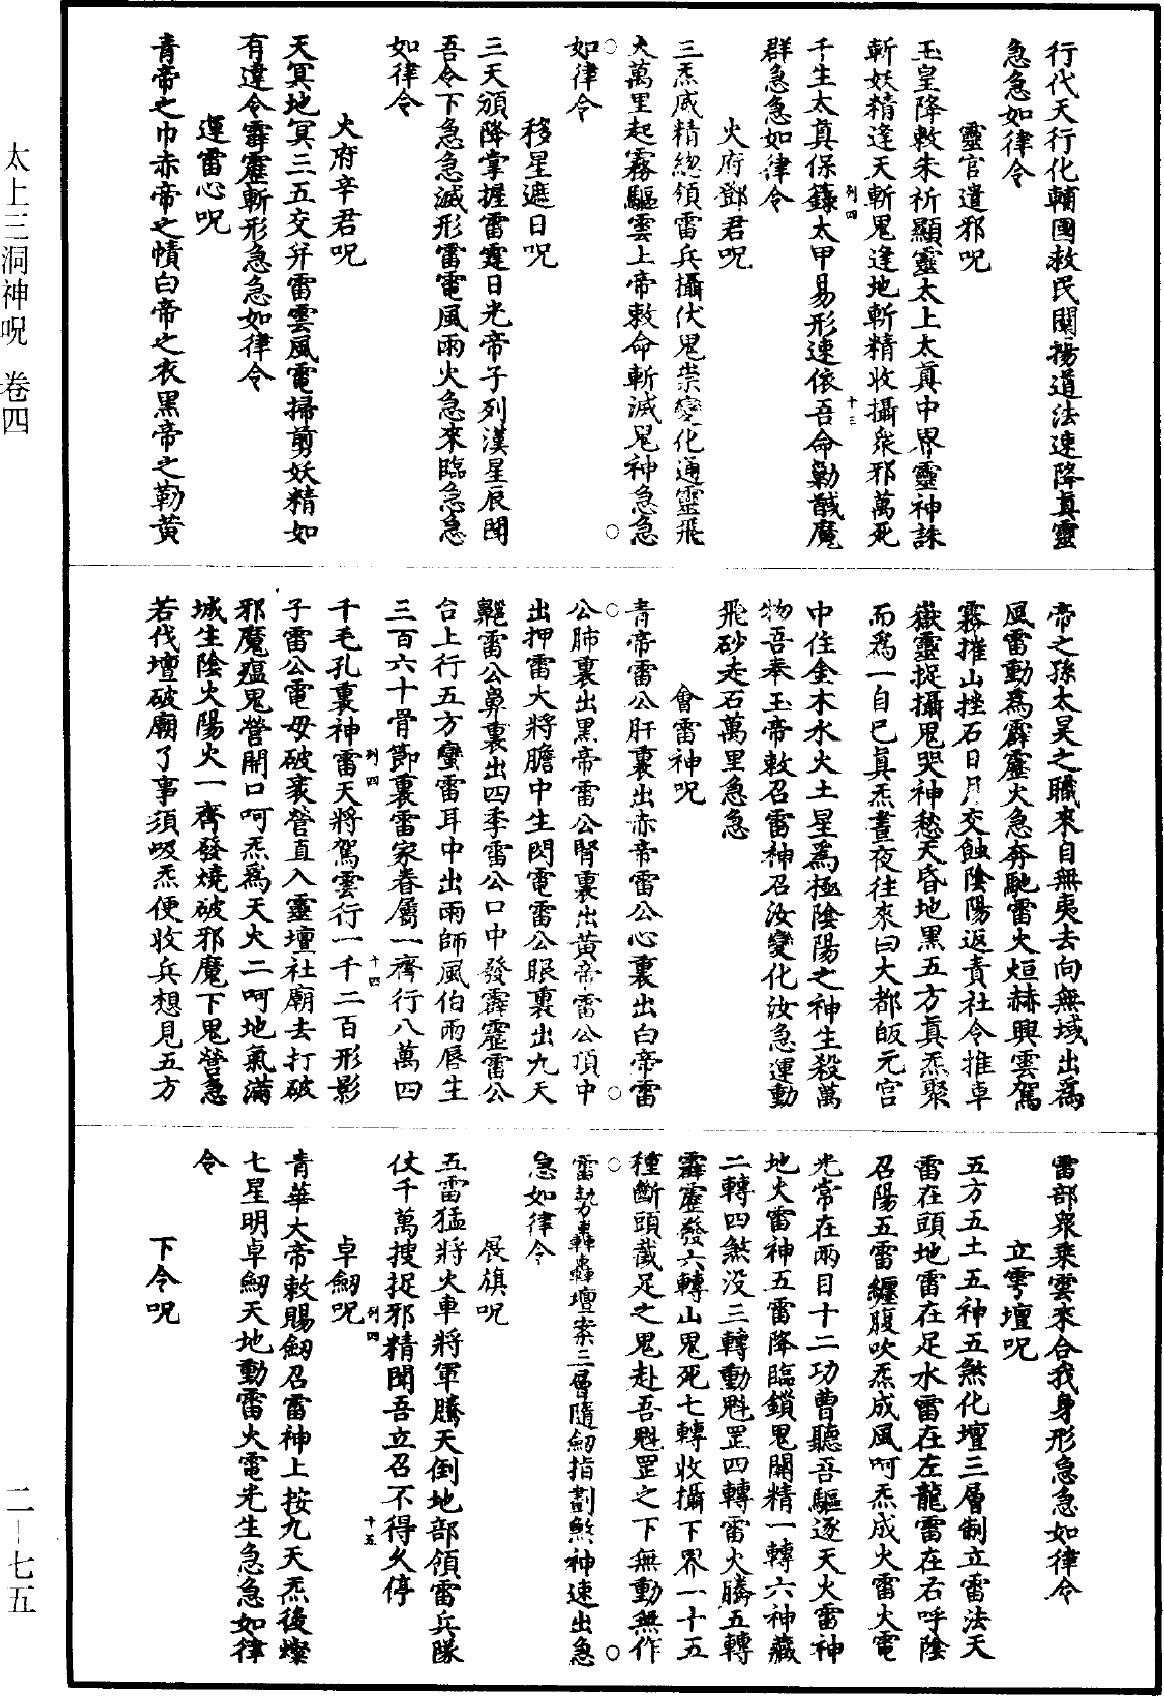 行代天行化輔國救民闡揚道法速降真靈
急急如律令
靈官遣邪呪
玉皇降敕朱祈顯靈太上太真中界靈神誅
斬妖精逢天斬鬼逢地斬精收攝衆邪萬死
千生太真保籙太甲易形速依吾命勦馘魔
群急急如律令
火府鄧君呪
三炁威精總領雷兵攝伏鬼祟變化通靈飛
火萬里起霧驅雲上帝敕命斬滅鬼神急急
如律令
移星遮日呪
三天頒降掌握雷霆日光帝子列漢星辰聞
吾令下急急滅形雷電風雨火急來臨急急
如律令
火府辛君呪
天冥地冥三五交并雷雲風電掃剪妖精如
有違令霹靂斬形急急如律令
運雷心呪
青帝之巾赤帝之幘白帝之衣黑帝之勒黃
帝之孫太昊之職來自無夷去向無域出爲
風雷動爲霹靂火急奔馳雷火烜赫興雲駕
霧摧山挫石日月交蝕陰陽返責社令推車
嶽靈捉攝鬼哭神愁天昏地黑五方真炁聚
而爲一自巳真炁晝夜往來曰大都皈元宫
中住金木水火土星爲極陰陽之神生殺萬
物吾奉玉帝敕召雷神召汝變化汝急運動
飛砂走石萬里急急
會雷神呪
青帝雷公肝裏出赤帝雷公心裏出白帝雷
公肺裏出黑帝雷公腎裏出黃帝雷公頂中
出押雷大將膽中生閃電雷公眼裏出九天
雷公鼻裏出四季雷公口中發霹靂雷公
台上行五方蠻雷耳中出雨師風伯兩唇生
三百六十骨節裏雷家眷屬一齊行八萬四
千毛孔裏神雷天將駕雲行一千二百形影
子雷公電母破衮營直入靈壇社廟去打破
邪魔瘟鬼營開口呵炁爲天火二呵地氣滿
城生陰火陽火一齊發燒破邪魔下鬼營急
若伐壇破廟了事須吸炁便收兵想見五方
雷部衆乘雲來合我身形急急如律令
立雩壇呪
五方五土五神五煞化壇三層制立雷法天
雷在頭地雷在足水雷在左龍雷在右呼陰
召陽五雷纏腹吹炁成風呵炁成火雷火電
光常在兩目十二功曹聽吾驅逐天火雷神
地火雷神五雷降臨鎖鬼關精一轉六神藏
二轉四煞没三轉動魁罡四轉雷火騰五轉
霹靂發六轉山鬼死七轉收攝下界一十五
種斷頭截足之鬼赴吾魁罡之下無動無作
雷勢轟轟壇案三層隨劒指劃煞神速出急
急如律令
展旗呪
五雷猛將火車將軍騰天倒地部領雷兵隊
仗千萬搜捉邪精聞吾立召不得久停
卓劒呪
青華大帝敕賜劒召雷神上按九天炁後燦
七星明卓劒天地動雷火電光生急急如律
令
下令呪
列四
十三
列四
十四
列四
十五
太上三洞神呪 卷四
二—七五